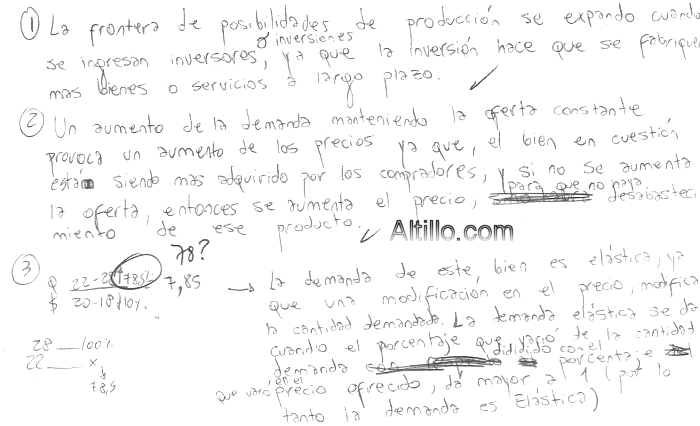 ① La frontera de posibilidades de producción se expando cuando
se ingresan inversores, o inversiones ya que la inversión hace que se fabriquen
mas bienes o servicios a largo plazo. ✓
② Un aumento de la demanda manteniendo la oferta constante
provoca un aumento de los precios ya que, el bien en cuestión
está siendo mas adquirido por los compradores, y si no se aumenta
la oferta, entonces se aumenta el precio, para que no haya desabasteci
miento de ese producto. ✓ Altillo.com
78?
③ Q 22-28 78,5% 7,85 → la demanda de este, bien es elástica, ya
$ 20-18 10%. que una modificación en el precio, modifica
la cantidad demandada. La demanda elástica se da
28 __ 100% cuando el porcentaje que varió de la cantidad
22 __ x demanda dividido con el porcentaje
78,5 que varo en el precio ofrecido, da mayor a 1 (por lo
tanto la demanda es Elástica)